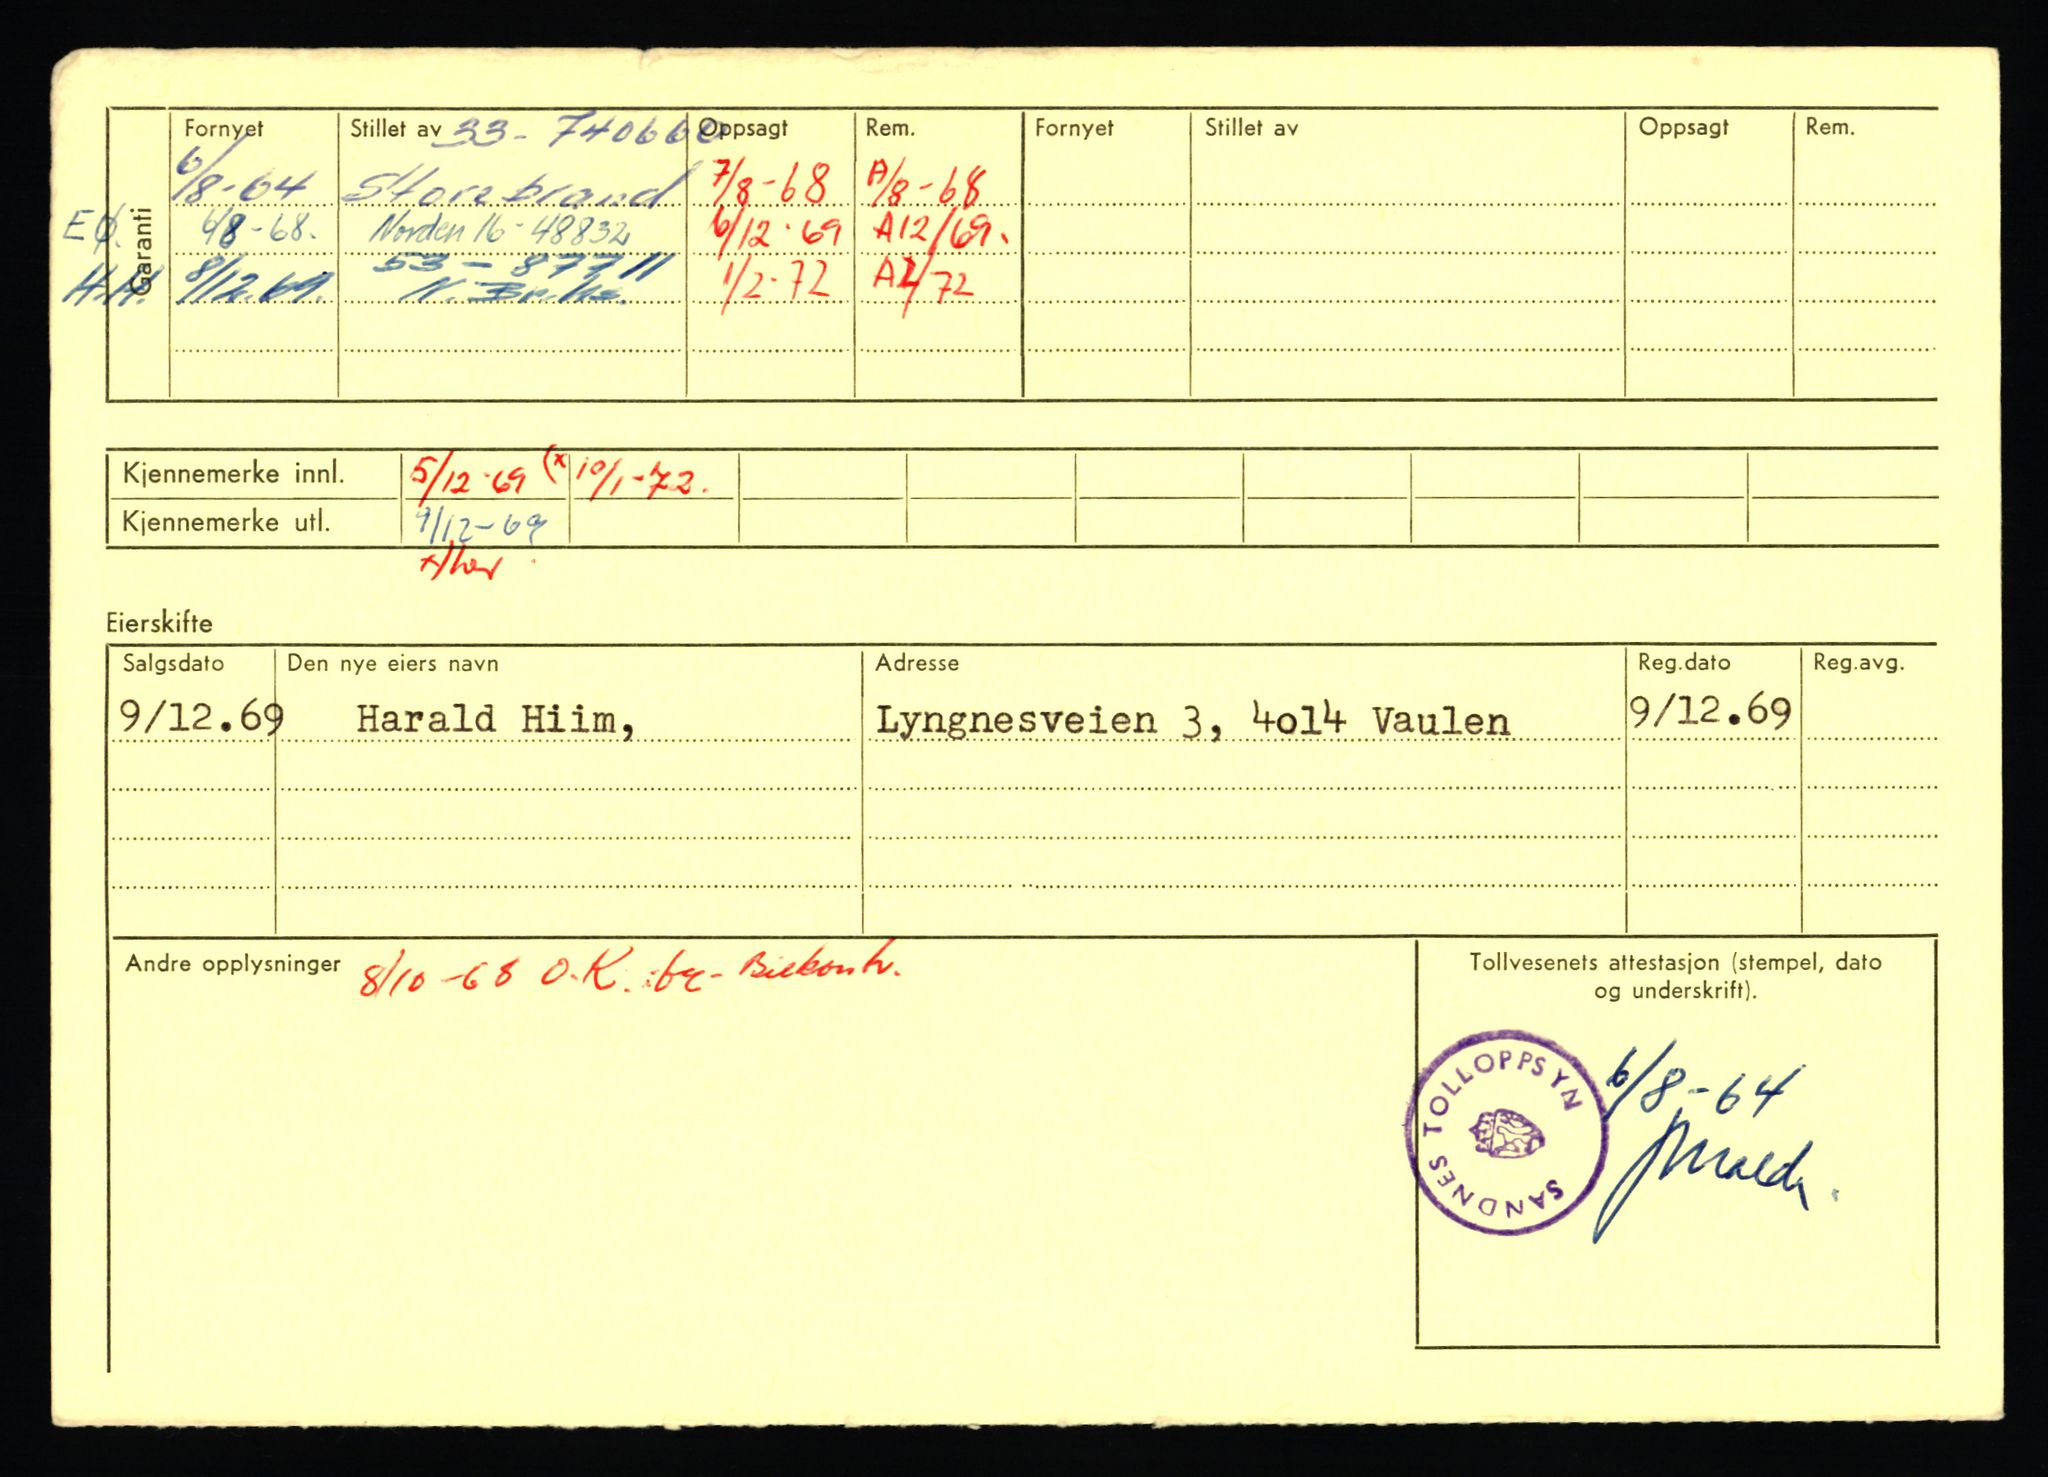 Garanti
Fornyet Stillet av 33-740660 Oppsagt Rem. Fornyet Stillet av Oppsagt Rem.
6/8-64 Storebrand 7/8-68 A/8-68
EØ. 6/8-68. Norden 16-48832 6/12-69 A12/69.
H.H. 8/12.69. 53-87711 1/2-72 A2/72
N.
Kjennemerke innl. 5/12-69 (x 10/1-72.
Kjennemerke utl. 9/12-69
x/her
Eierskifte
Salgsdato Den nye eiers navn Adresse Reg.dato Reg.avg.
9/12.69 Harald Hiim, Lyngnesveien 3, 4o14 Vaulen 9/12.69
Andre opplysninger 8/10-68 O.K. Bilkontr.
Tollvesenets attestasjon (stempel, dato
og underskrift).
SANDNES TOLLOPPSYN
6/8-64